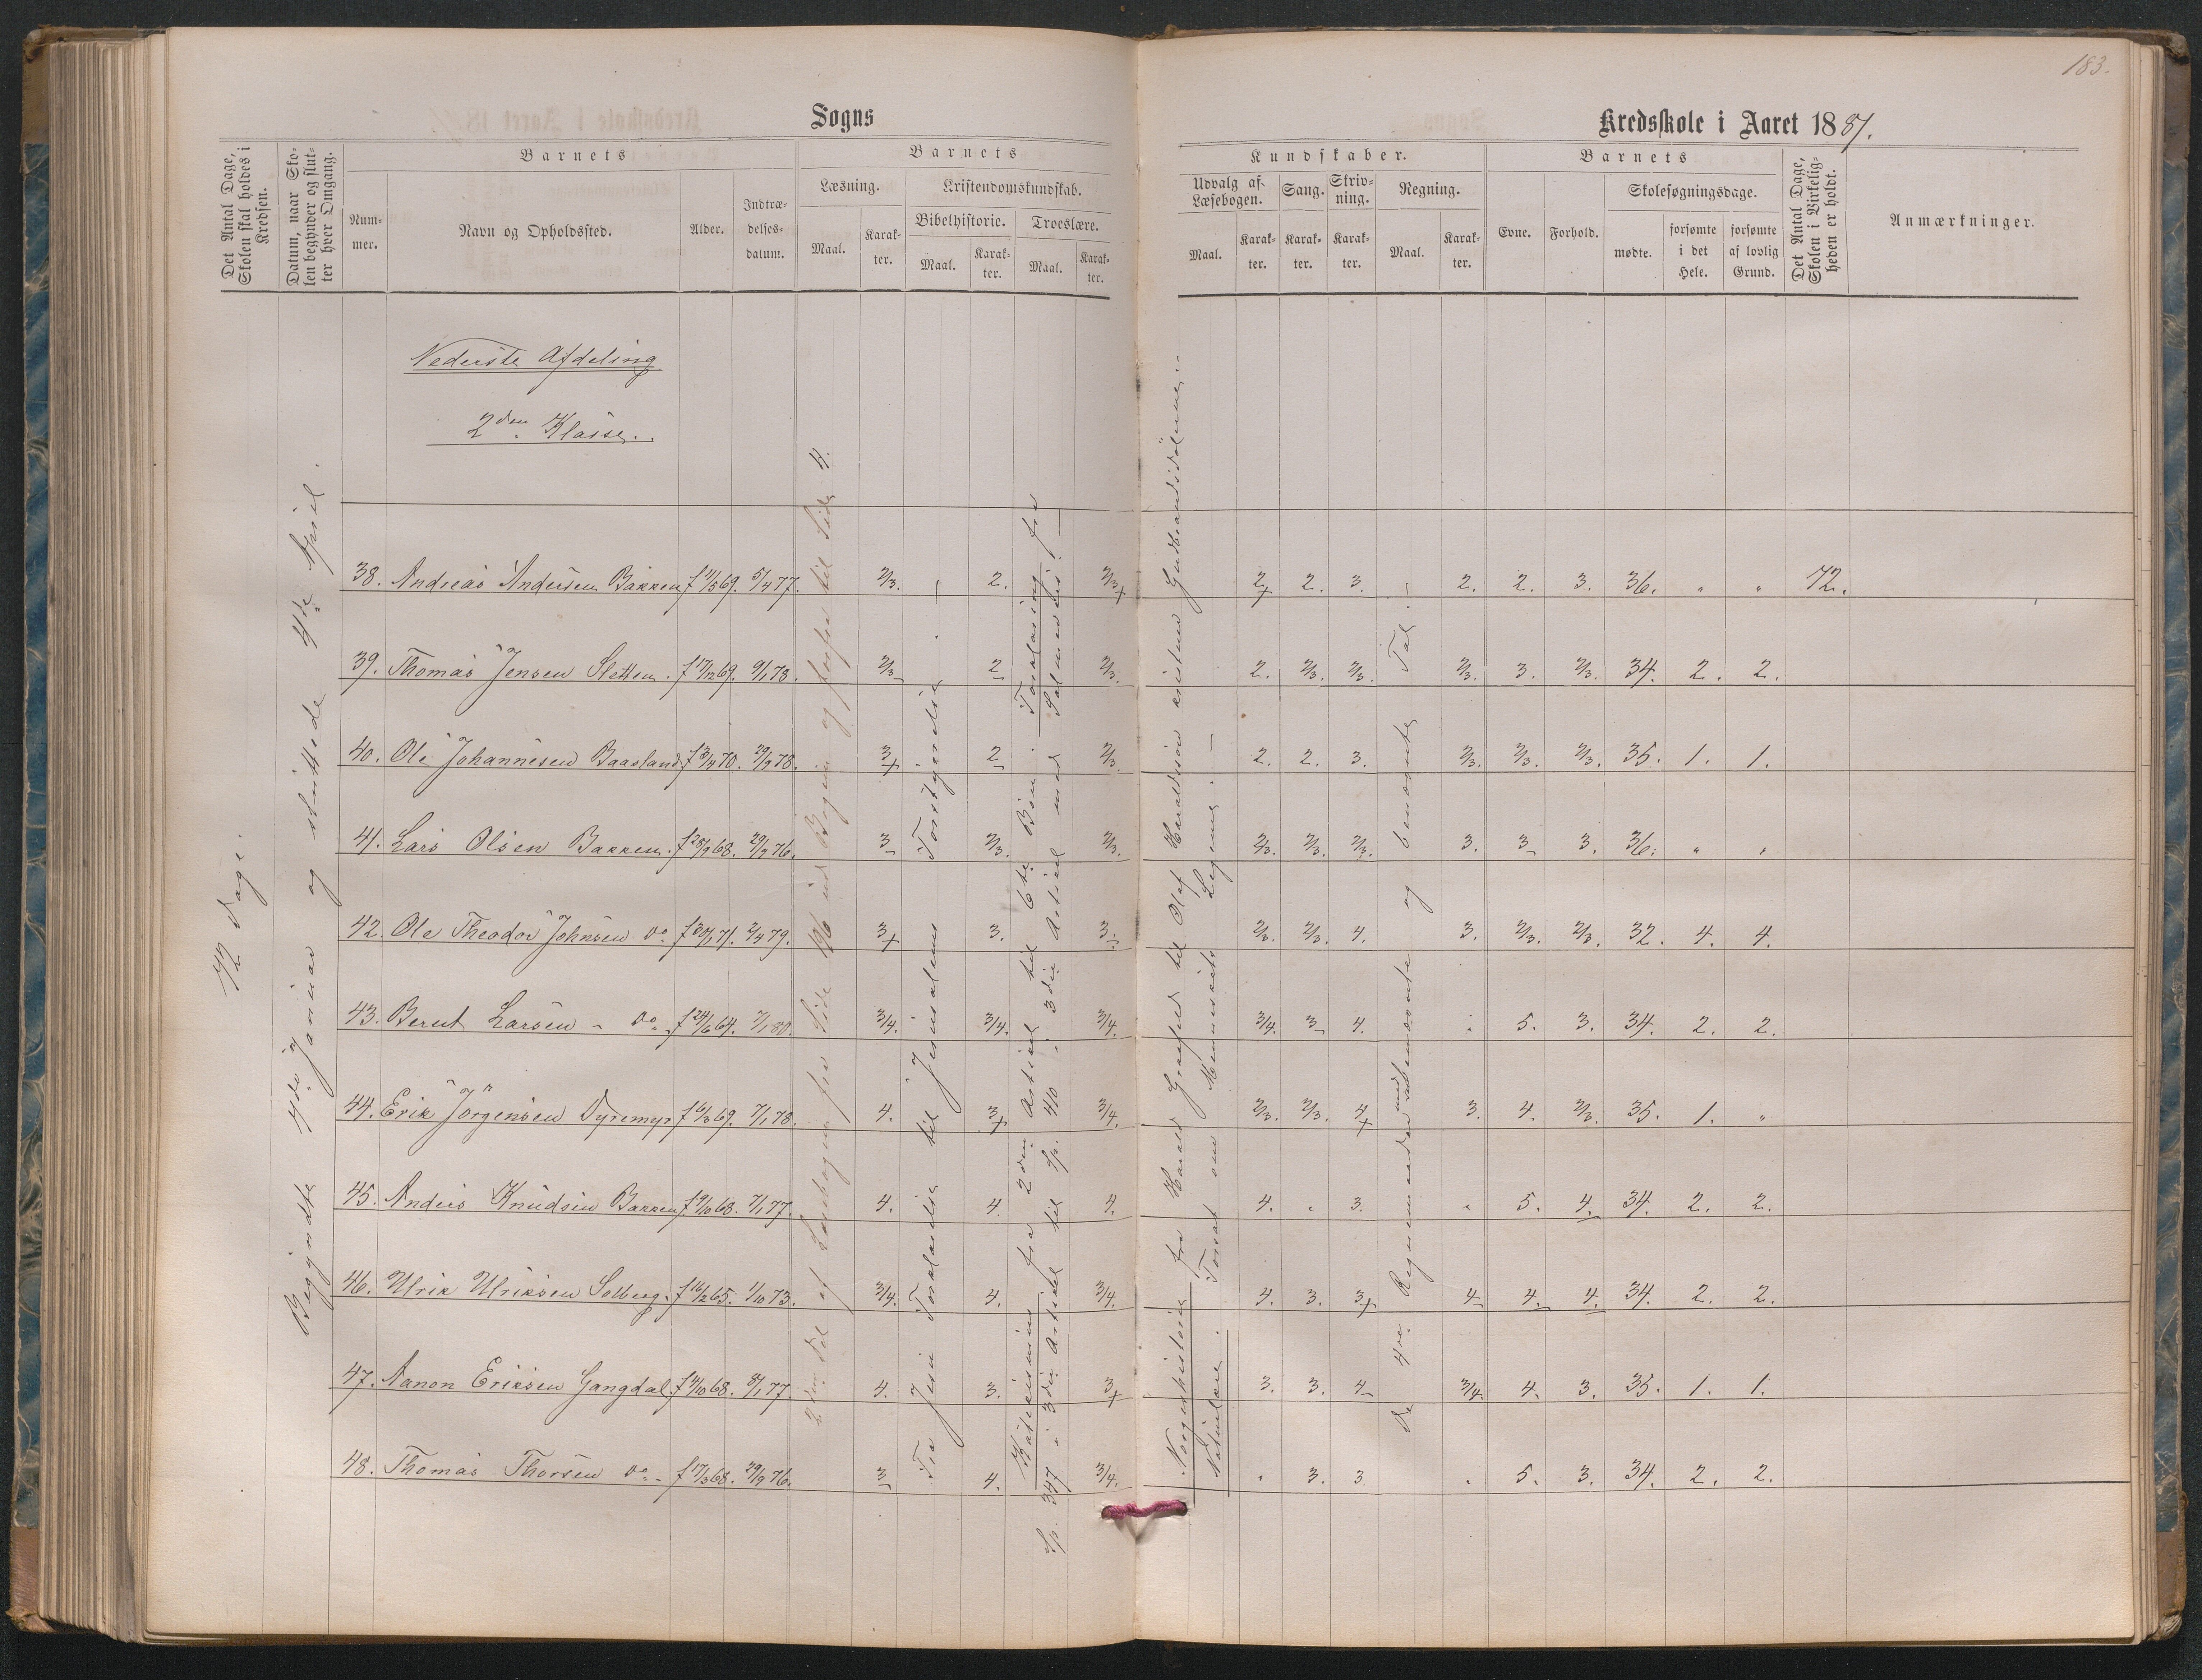 183.
Sogns
Kredsskole i Aaret 1881.
Det Antal Dage, Skolen skal holdes i Kredsen.
Datum, naar Skolen begynder og slutter hver Omgang.
Barnets
Nummer.
Navn og Opholdssted.
Alder.
Indtrædelsesdatum.
Barnets
Læsning.
Maal.
Karakter.
Kristendomskundskab.
Bibelhistorie.
Maal.
Karakter.
Troeslære.
Maal.
Karakter.
Kundskaber.
Udvalg af Læsebogen.
Maal.
Karakter.
Sang.
Karakter.
Skrivning.
Karakter.
Regning.
Maal.
Karakter.
Barnets
Evne.
Forhold.
Skolesøgningsdage.
mødte.
forsømte i det Hele.
forsømte af lovlig Grund.
Det Antal Dage, Skolen i Virkeligheden er holdt.
Anmærkninger.
Nederste Afdeling
2den Klasse.
72 Dage.
Begyndte 4de Januar og sluttede 4de April.
38. Andreas Andersen Bakken f 11/5 69. 5/4 77. 2/3. 2. 2/3+ 2+ 2. 3. 2. 2. 3. 36. " " 72.
39. Thomas Jensen Sletten. f 17/12 69. 9/1 78. 2/3- 2- 2/3. 2. 2/3. 2/3. 2/3. 3. 2/3. 34. 2. 2.
40. Ole Johannesen Baasland. f 3/4 70. 29/9 78. 3+ 2- 2/3. 2. 2. 3. 2/3. 2/3. 2/3. 35. 1. 1.
41. Lars Olsen Bakken. f 28/9 68. 29/9 76. 3- 2/3. 2/3. 2/3. 2/3. 2/3. 3. 3- 3. 36. " "
42. Ole Theodor Johnsen do. f 30/1 71. 2/4 79. 3+ 3. 3- 2/3. 2/3. 4. 3. 2/3. 2/3. 32. 4. 4.
43. Bernt Larsen - do. f 24/6 64. 7/1 81. 3/4. 3/4. 3/4. 3/4. 3- 4. " 5. 3. 34. 2. 2.
44. Erik Jörgensen Dyremyr f 6/3 69. 7/1 78. 4. 3+ 3/4. 2/3. 2/3. 4+ 3. 4. 2/3. 35. 1. "
45. Anders Knudsen Bakken f 9/10 68. 7/1 77. 4. 4. 4. 4. " 3. " 5. 4- 34. 2. 2.
46. Ulrik Ulriksen Solberg. f 16/2 65. 1/10 73. 3/4. 4. 3/4. 4. 3. 3+ 4- 4- 4- 34. 2. 2.
47. Aanon Eriksen Gangdal f 4/10 68. 8/1 77. 4. 3. 3+ 3. 3. 4- 3/4. 4. 3. 35. 1. 1.
48. Thomas Thorsen do. - f 17/3 68. 29/9 76. 3- 4. 3/4. " 3. 3 " 5. 3. 34. 2. 2.
2den Del af Læsebogen fra Side 196 ud Bogen og forfra til Side 4.
Fra Jesu Forklarelse til Jerusalems Forstyrrelse. -
Katekismen fra 2den Artikel til 6te Bön. Forklaring fra
Sp. 347 i 3die Artikel til Sp. 410 i 3die Artikel med
Norgeshistorie fra Harald Graafeld til Olaf Haraldssön
Naturlære. Forsat om Menneskets Legeme. -
De 4re Regnemaader med ubenævnte og benævnte Tal. -